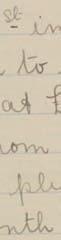 st in
to
at £
om
pl
nth